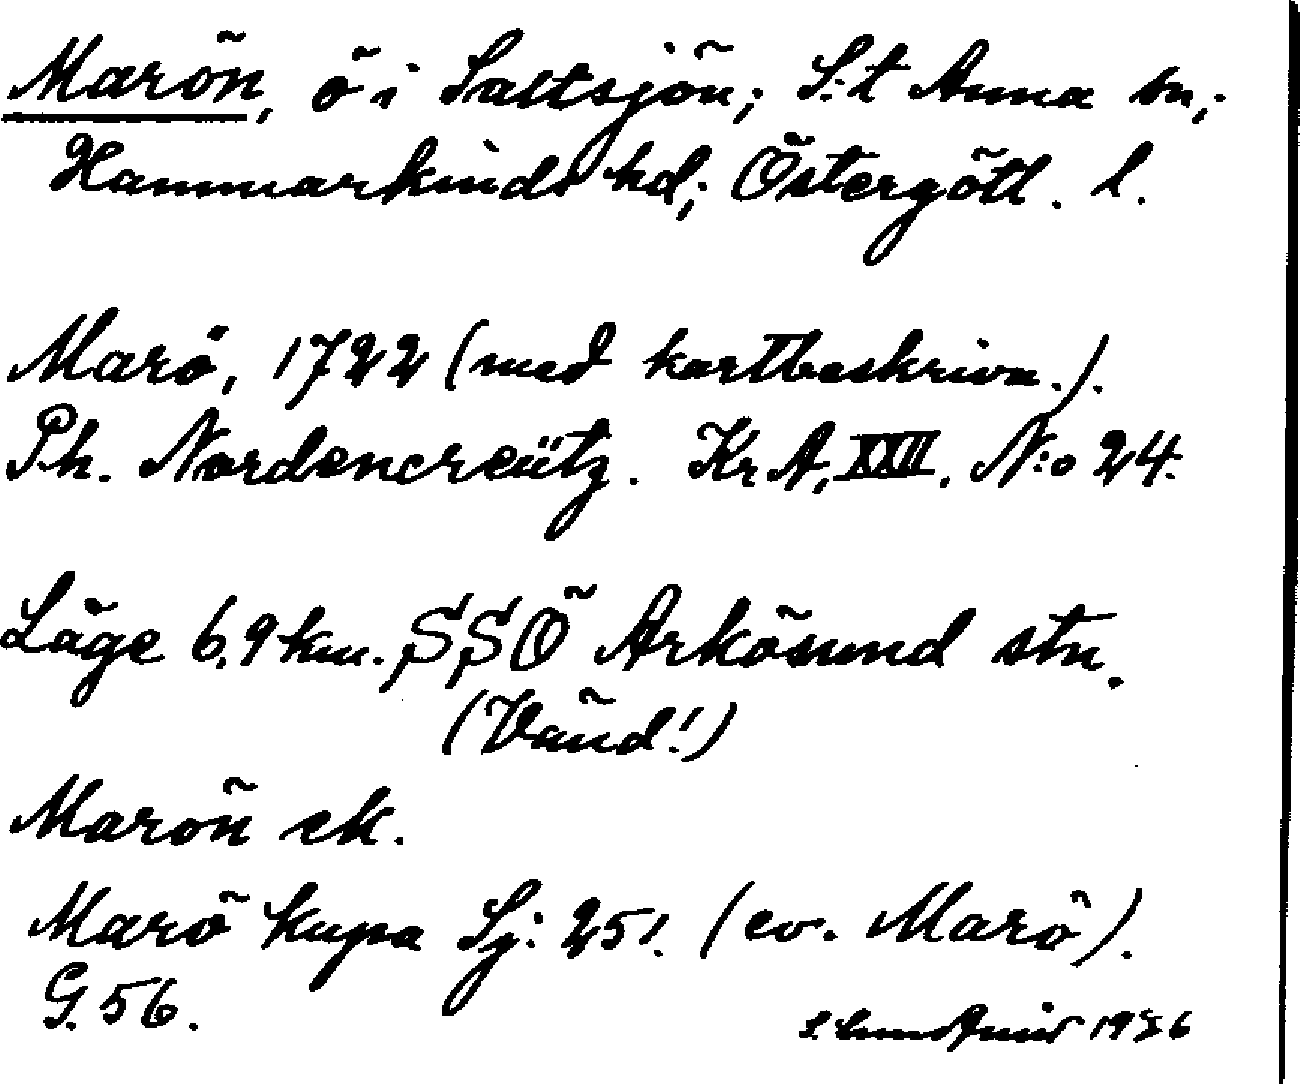 Marön, ö i Saltsjön; S:t Anna sn,;
Hammarkinds hd; Östergötl. l.
Marö, 1722 (med kartbeskrivn.).
Ph. Nordencreütz. Kr.A, XXII. N:o 24.
Läge 6,9 km. SSÖ Arkösund stn.
(Vänd!)
Marön ek.
Marö kupa Sj: 251. (ev. Marö).
G. 56.
S. 1936